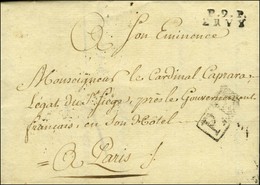 P.9.P.
A Son Eminence
Monseigneur le Cardinal Caprara,
Légat du St Siège, près le Gouvernement
français, en son Hôtel
A Paris